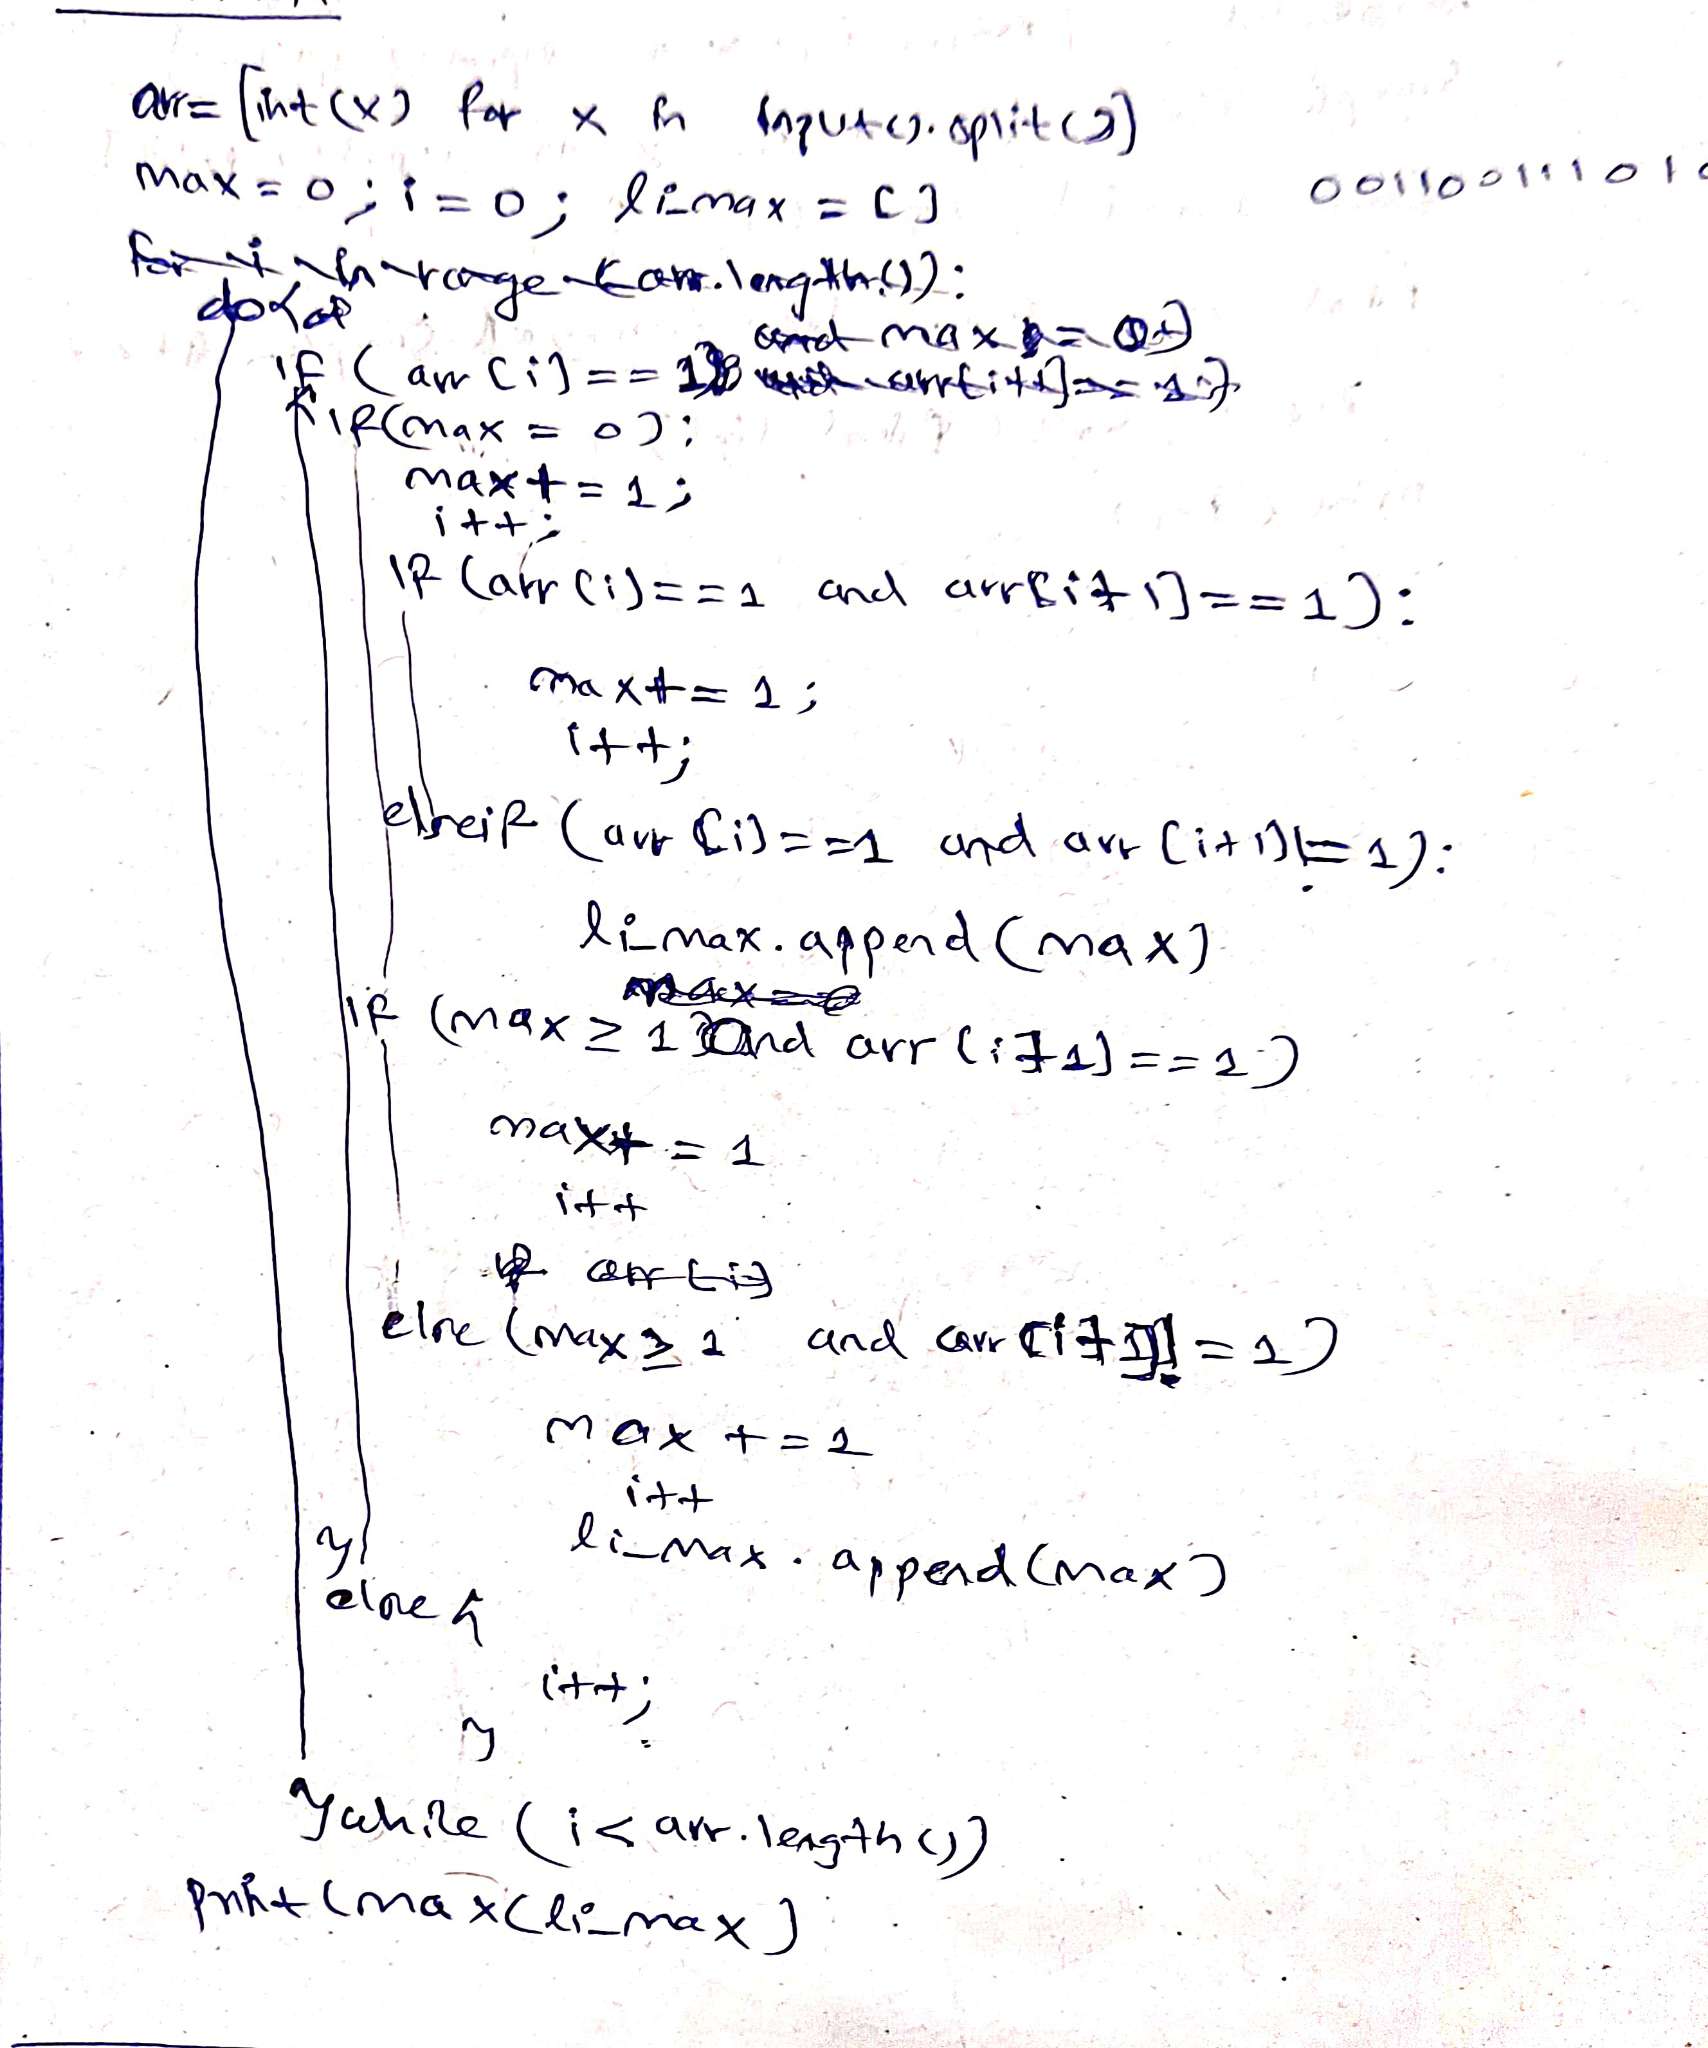 arr= [int(x) for x in input().split()]
max = 0; i = 0; li_max = []
001100111010
for i in range (arr.length()):
do
and max = 0)
if (arr[i] == 1) and arr[i+1] == 1)
{ if(max = 0):
max += 1;
i++;
if (arr[i]==1 and arr[i+1]==1):
max+= 1;
i++;
elseif (arr[i]==1 and arr[i+1]!=1):
li_max.append(max)
max=0
if (max ≥ 1 and arr[i+1]==1)
max+ = 1
i++
if arr[i]
else (max ≥ 1 and arr[i+1]!=1)
max +=1
i++
li_max.append(max)
}
else {
i++;
}
}while (i< arr.length())
print(max(li_max)